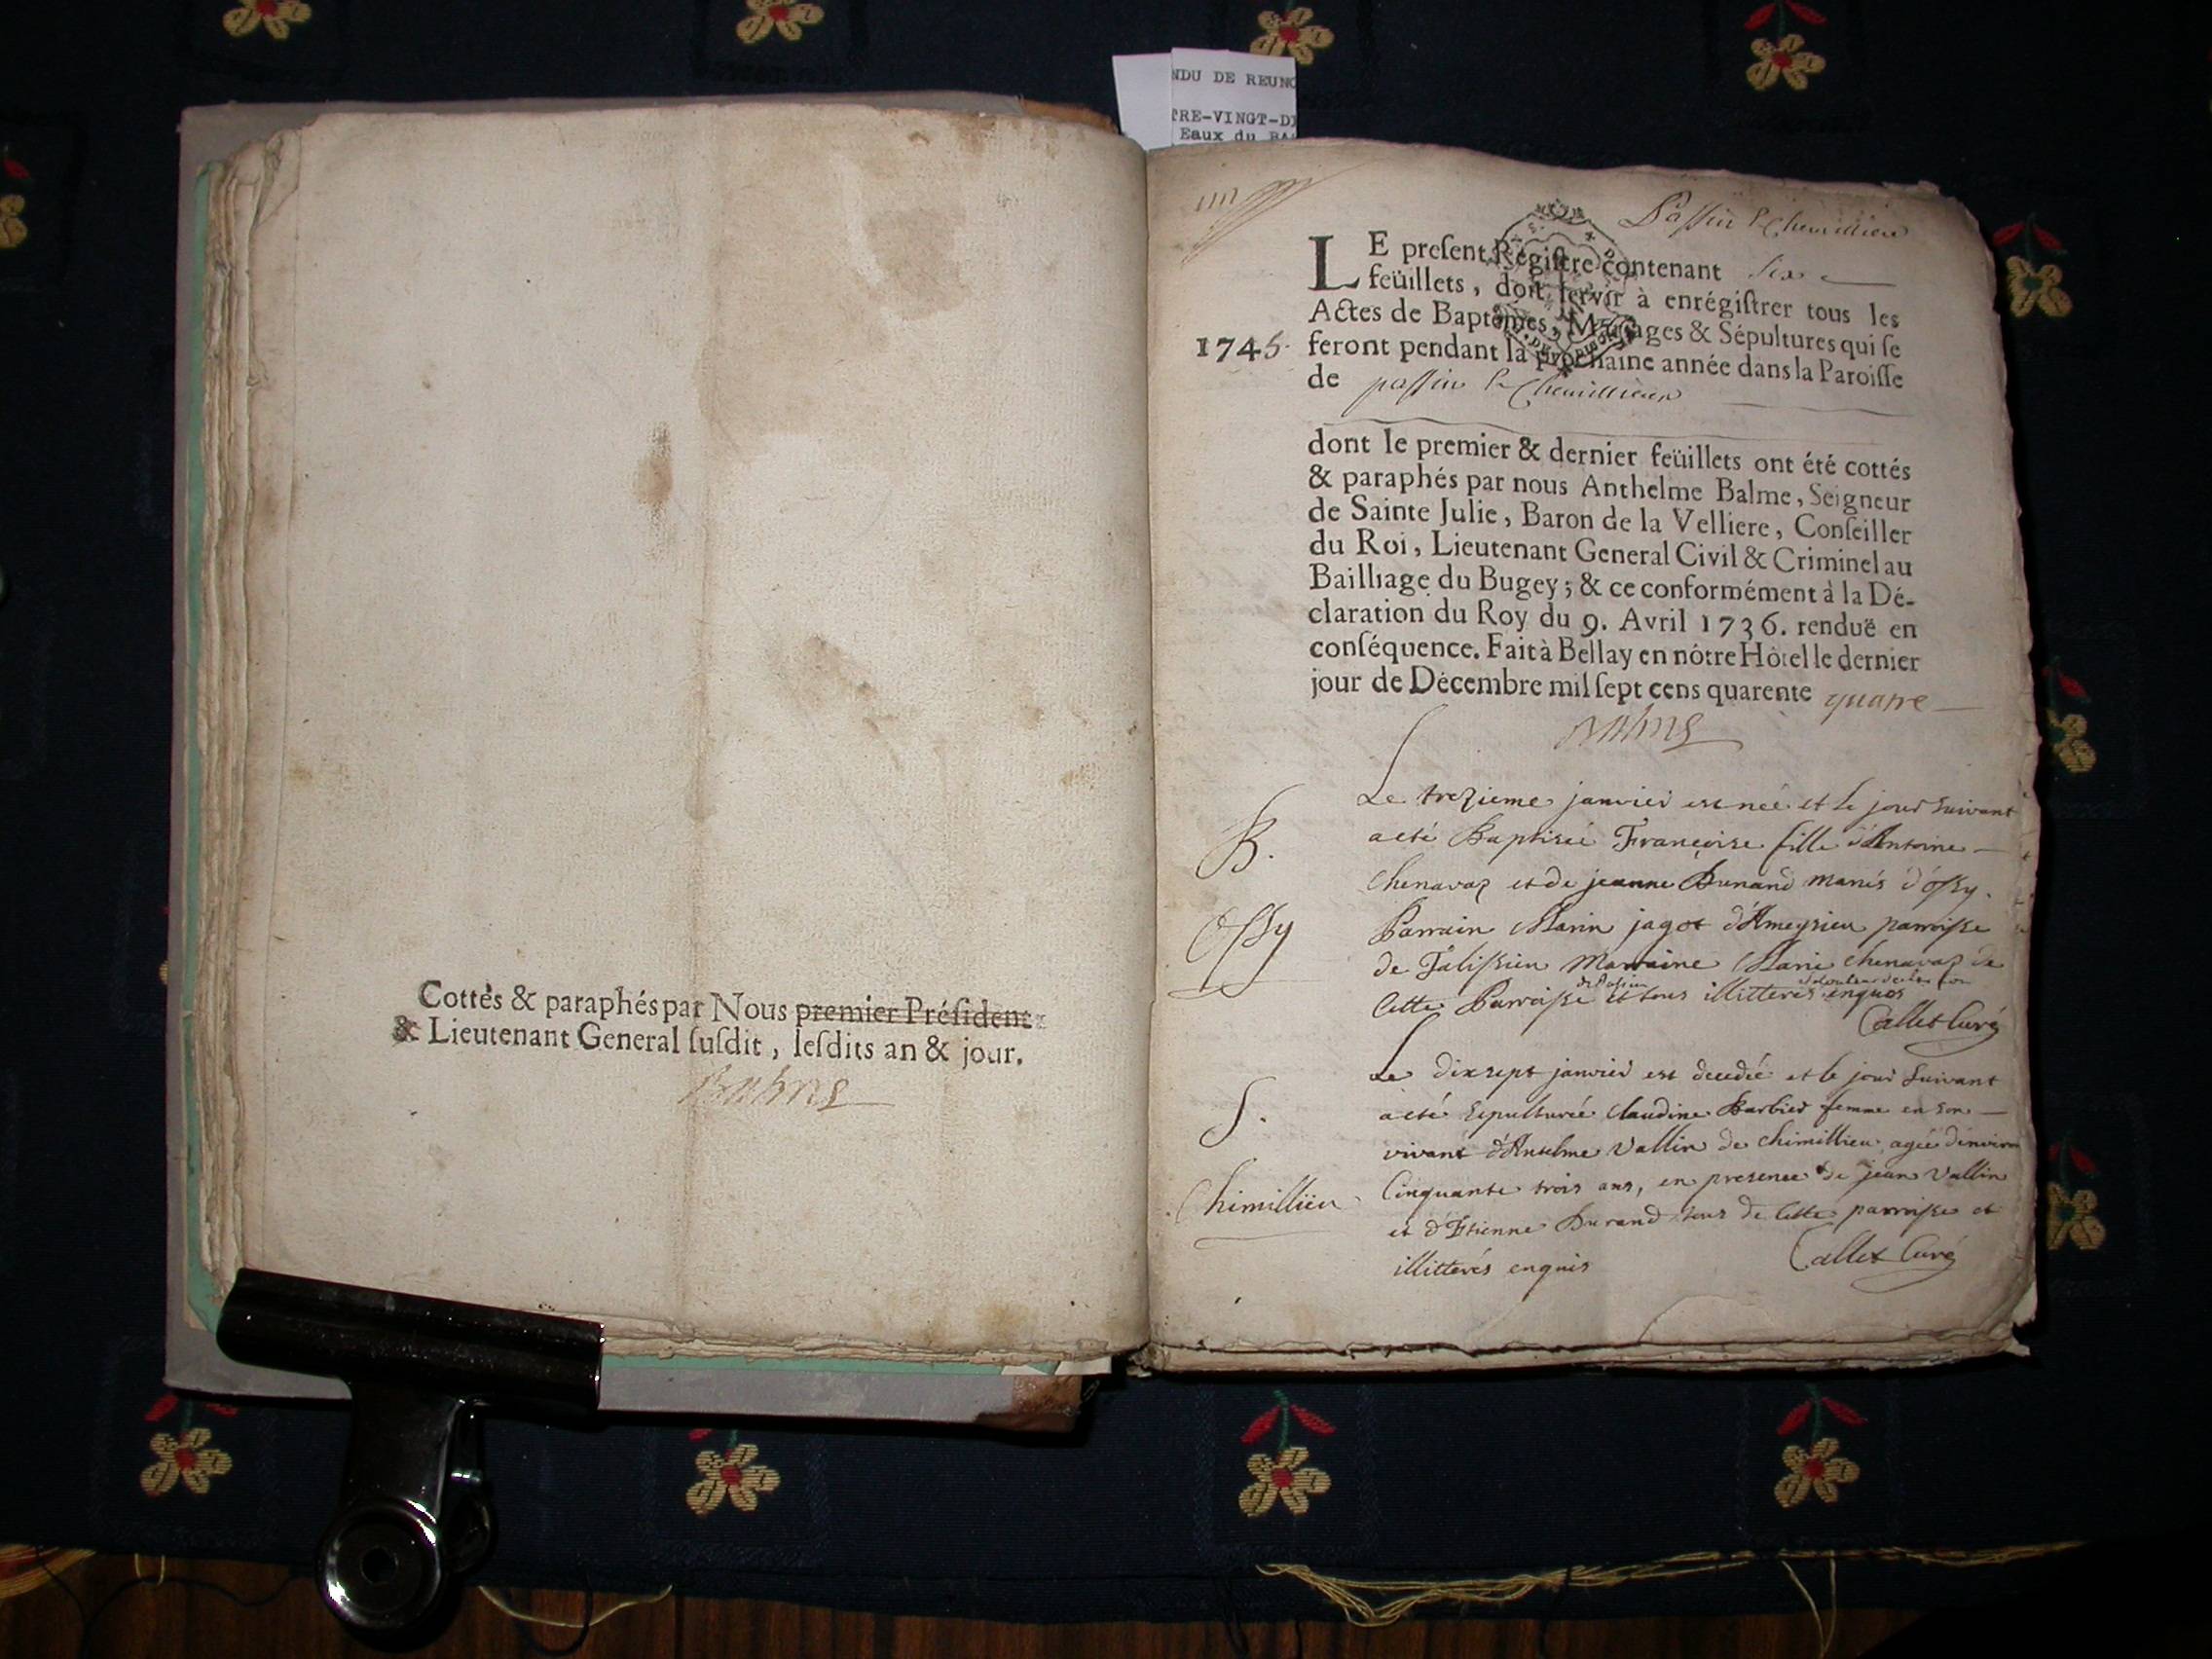 NDU DE REUNO
TRE-VINGT-DI
Eaux du BA
Cottés & paraphés par Nous premier Président
& Lieutenant General ſuſdit, leſdits an & jour.
Passin & Chemillieu
LE preſent Regiſtre contenant six
feüillets, doit ſervir à enrégiſtrer tous les
Actes de Baptêmes, Mariages & Sépultures qui ſe
1745. feront pendant la prochaine année dans la Paroiſſe
de passin & Chemillieu
dont le premier & dernier feüillets ont été cottés
& paraphés par nous Anthelme Balme, Seigneur
de Sainte Julie, Baron de la Velliere, Conſeiller
du Roi, Lieutenant General Civil & Criminel au
Bailliage du Bugey; & ce conformément à la Dé-
claration du Roy du 9. Avril 1736. renduë en
conſéquence. Fait à Bellay en nôtre Hôtel le dernier
jour de Décembre mil ſept cens quarente quatre
Le trezieme janvier est née et le jour suivant
B. a eté Baptisée Françoise fille d'Antoine
Chenavaz et de jeanne Dunand mariés d'ossy.
Ossy Parrain Marin jagot d'Ameyzieu parroisse
de Talissieu Marraine Marie chenavaz de
de Passin
Cette Parroisse et tous illitterés enquis
Callet Curé
Le dixsept janvier est decedée et le jour suivant
S. a eté sepulturée Claudine Barbier femme en son
vivant d'Anselme Vallin de chimillieu agée d'environ
Chimillieu Cinquante trois ans, en presence de jean Vallin
et d'Etienne Durand tous de Cette parroisse et
illitterés enquis Callet Curé